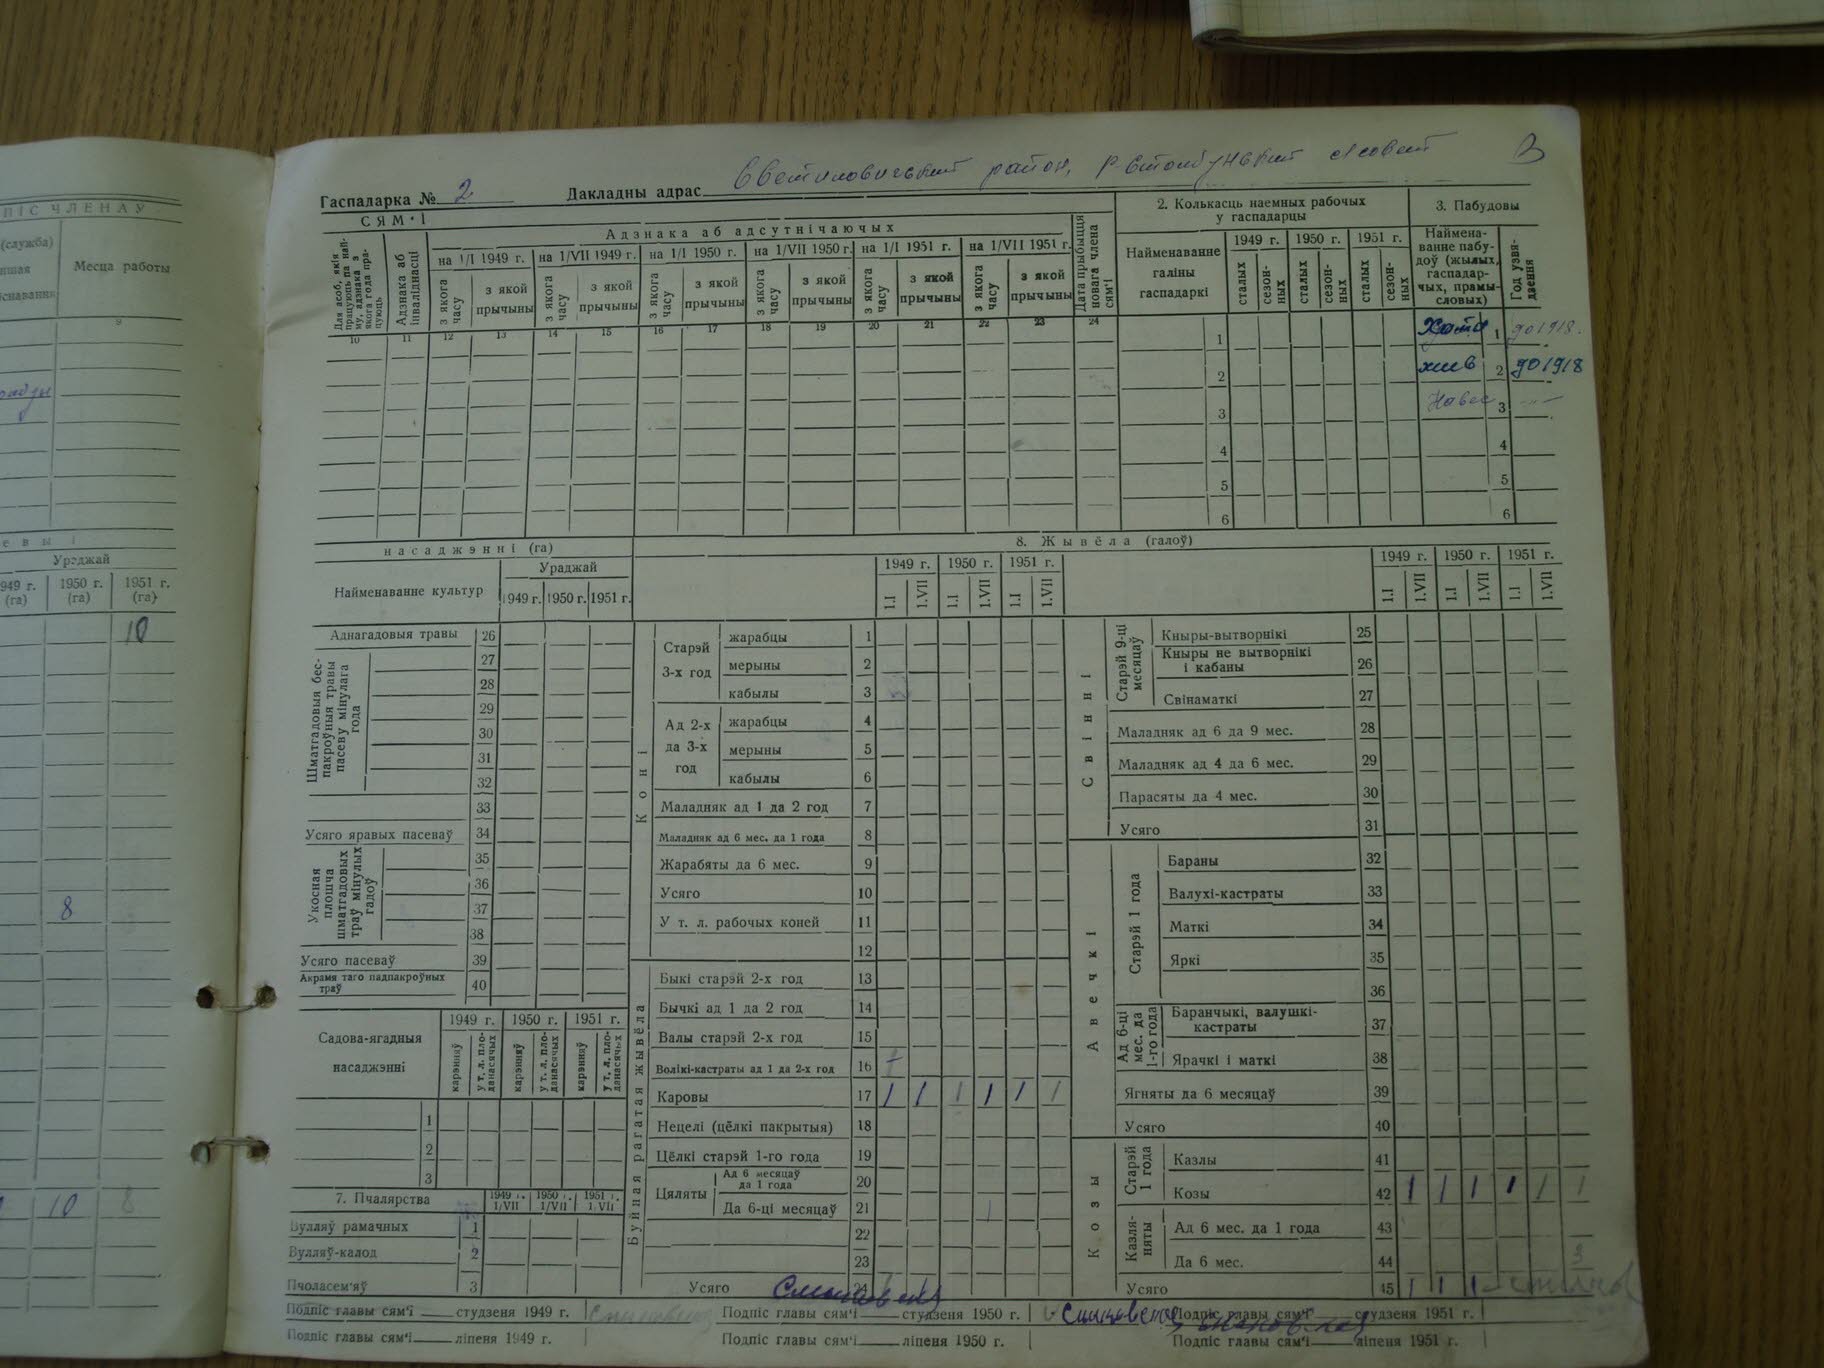 ПІС ЧЛЕНАЎ
(служба)
Месца работы
9
Ураджай
949 г. (га) 1950 г. (га) 1951 г. (га)
10
8
10 8
Гаспадарка № 2 Дакладны адрас район,
СЯМ'І
Адзнака аб адсутнічаючых
Для асоб, якія працуюць па найму, адзнака з якога года працуюць
Адзнака аб інваліднасці
на 1/I 1949 г. на 1/VII 1949 г. на 1/I 1950 г. на 1/VII 1950 г. на 1/I 1951 г. на 1/VII 1951 г.
з якога часу з якой прычыны з якога часу з якой прычыны з якога часу з якой прычыны з якога часу з якой прычыны з якога часу з якой прычыны з якога часу з якой прычыны
Дата прыбыцця новага члена сям'і
10 11 12 13 14 15 16 17 18 19 20 21 22 23 24
2. Колькасць наемных рабочых у гаспадарцы
Найменаванне галіны гаспадаркі
1949 г. 1950 г. 1951 г.
сталых сезонных сталых сезонных сталых сезонных
1
2
3
4
5
6
3. Пабудовы
Найменаванне пабудоў (жылых, гаспадарчых, прамысловых)
Год узвядзення
Хата 1 до 1918
хлев 2 до 1918
Навес 3 —
4
5
6
насаджэнні (га)
Найменаванне культур
Ураджай
1949 г. 1950 г. 1951 г.
Аднагадовыя травы 26
Шматгадовыя беспакроўныя травы пасеву мінулага года
27
28
29
30
31
32
33
Усяго яравых пасеваў 34
Укосная плошча шматгадовых траў мінулых гадоў
35
36
37
38
Усяго пасеваў 39
Акрамя таго падпакроўных траў 40
Садова-ягадныя насаджэнні
1949 г. 1950 г. 1951 г.
карэнняў у т. л. пладанасячых карэнняў у т. л. пладанасячых карэнняў у т. л. пладанасячых
1
2
3
7. Пчалярства
1949 г. 1/VII 1950 г. 1/VII 1951 г. 1/VII
Вулляў рамачных 1
Вулляў-калод 2
Пчоласем'яў 3
8. Жывёла (галоў)
1949 г. 1950 г. 1951 г.
1.I 1.VII 1.I 1.VII 1.I 1.VII
Коні
Старэй 3-х год
жарабцы 1
мерыны 2
кабылы 3
Ад 2-х да 3-х год
жарабцы 4
мерыны 5
кабылы 6
Маладняк ад 1 да 2 год 7
Маладняк ад 6 мес. да 1 года 8
Жарабяты да 6 мес. 9
Усяго 10
У т. л. рабочых коней 11
12
Буйная рагатая жывёла
Быкі старэй 2-х год 13
Бычкі ад 1 да 2 год 14
Валы старэй 2-х год 15
Волікі-кастраты ад 1 да 2-х год 16
Каровы 17 1 1 1 1 1 1
Нецелі (цёлкі пакрытыя) 18
Цёлкі старэй 1-го года 19
Цяляты
Ад 6 месяцаў да 1 года 20
Да 6-ці месяцаў 21 1
22
23
Усяго 24
1949 г. 1950 г. 1951 г.
1.I 1.VII 1.I 1.VII 1.I 1.VII
Свінні
Старэй 9-ці месяцаў
Кныры-вытворнікі 25
Кныры не вытворнікі і кабаны 26
Свінаматкі 27
Маладняк ад 6 да 9 мес. 28
Маладняк ад 4 да 6 мес. 29
Парасяты да 4 мес. 30
Усяго 31
Авечкі
Старэй 1 года
Бараны 32
Валухі-кастраты 33
Маткі 34
Яркі 35
36
Ад 6-ці мес. да 1-го года
Баранчыкі, валушкі-кастраты 37
Ярачкі і маткі 38
Ягняты да 6 месяцаў 39
Усяго 40
Козы
Старэй 1 года
Казлы 41
Козы 42 1 1 1 1 1 1
Казляняты
Ад 6 мес. да 1 года 43
Да 6 мес. 44 3
Усяго 45 1 1 1
Подпіс главы сям'і студзеня 1949 г. Подпіс главы сям'і студзеня 1950 г. Подпіс главы сям'і студзеня 1951 г.
Подпіс главы сям'і ліпеня 1949 г. Подпіс главы сям'і ліпеня 1950 г. Подпіс главы сям'і ліпеня 1951 г.